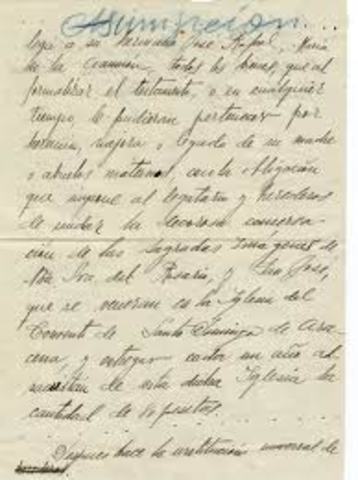 Asunción
lega a su hermano José Rafael, María
de la Asunción, todos los bienes, que al
formalizar el testamento, o en cualquier
tiempo, le pudieran pertenecer por
herencia, mejora o legado de su madre
o abuelos maternos, con la obligación
que impone al legatario y herederos
de cuidar la decorosa conserva-
ción de las Sagradas Imágenes de
Ntra Sra. del Rosario, y San José,
que se veneran en la Iglesia del
Convento de Santo Domingo de Ara-
cena, y entregar cada un año al
sacristán de esta dicha Iglesia la
cantidad de pesetas.
Después hace la institución universal de